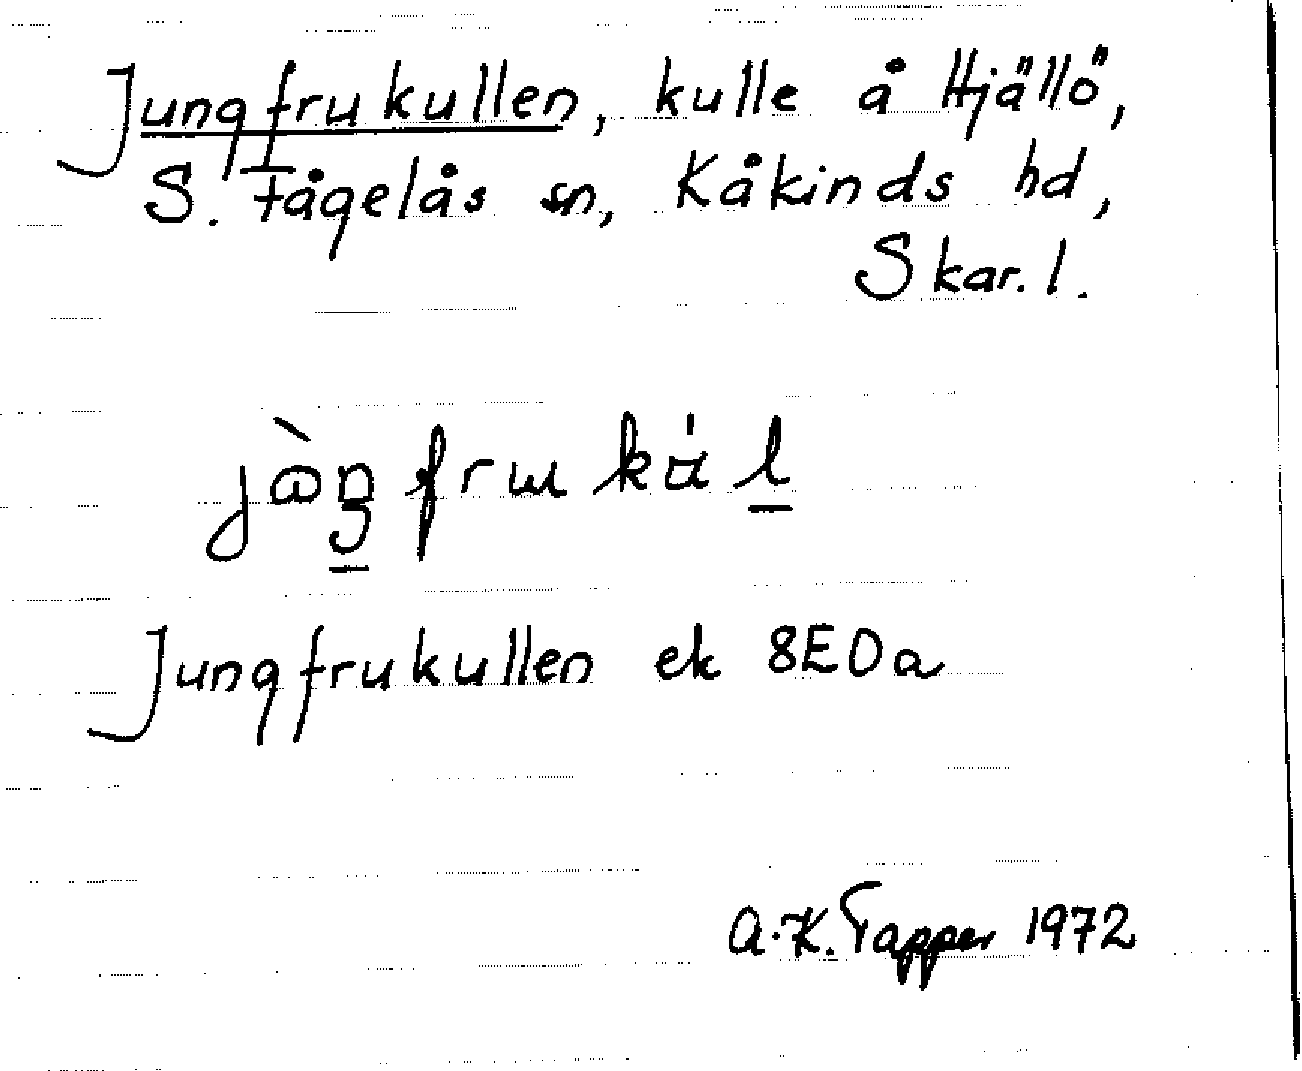 Jungfrukullen, kulle å Hjällö,
S. Fågelås sn, Kåkinds hd,
Skar. l.
Jungfrukullen ek 8E0a
A.-K. Tapper 1972